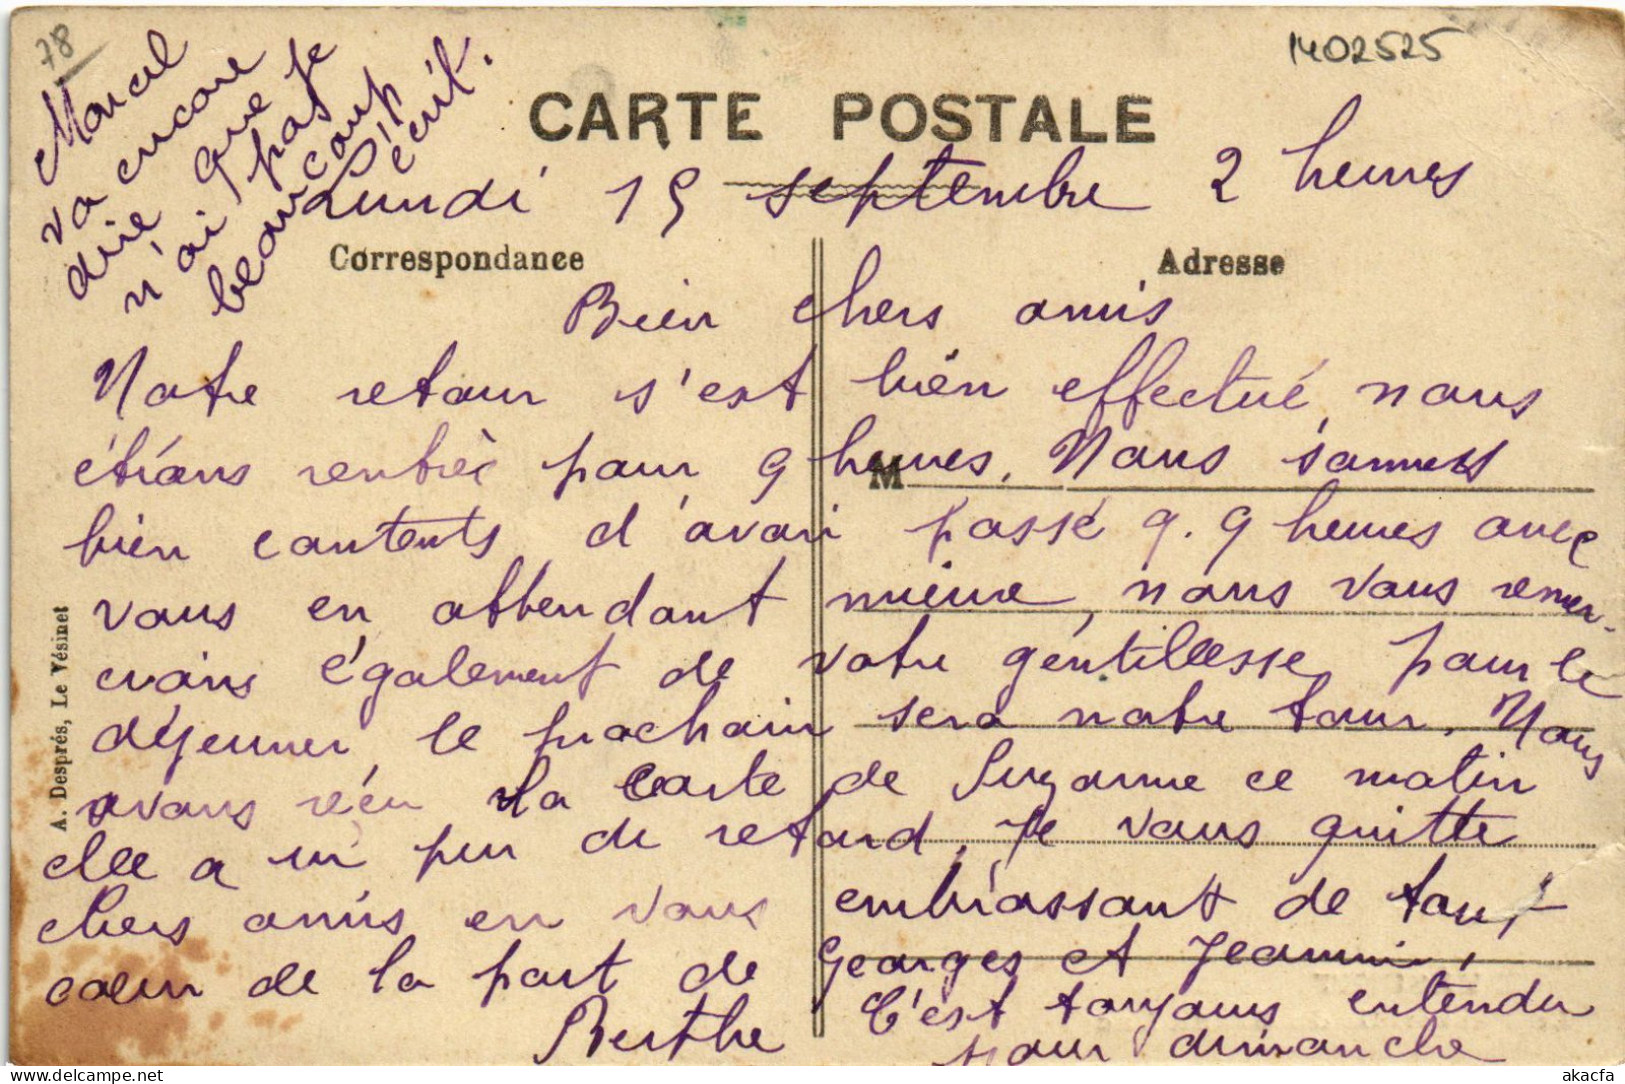 78
1402525
Marcel
va encore
dire que je
n'ai pas
beaucoup
écrit.
CARTE POSTALE
Lundi 15 septembre 2 heures
Correspondance
Adresse
Bien chers amis
Notre retour s'est bien effectué nous
étions rentrés pour 9 heures. Nous sommes
M
bien contents d'avoir passé q. q heures avec
vous en attendant mieux, nous vous remer-
cions également de votre gentillesse pour le
déjeuner, le prochain sera notre tour. Nous
avons reçu la carte de Suzanne ce matin
elle a un peu de retard. Je vous quitte
chers amis en vous embrassant de tout
coeur de la part de Georges et Jeannine,
Berthe
C'est toujours entendu
pour dimanche
A. Després, Le Vésinet
akacfa